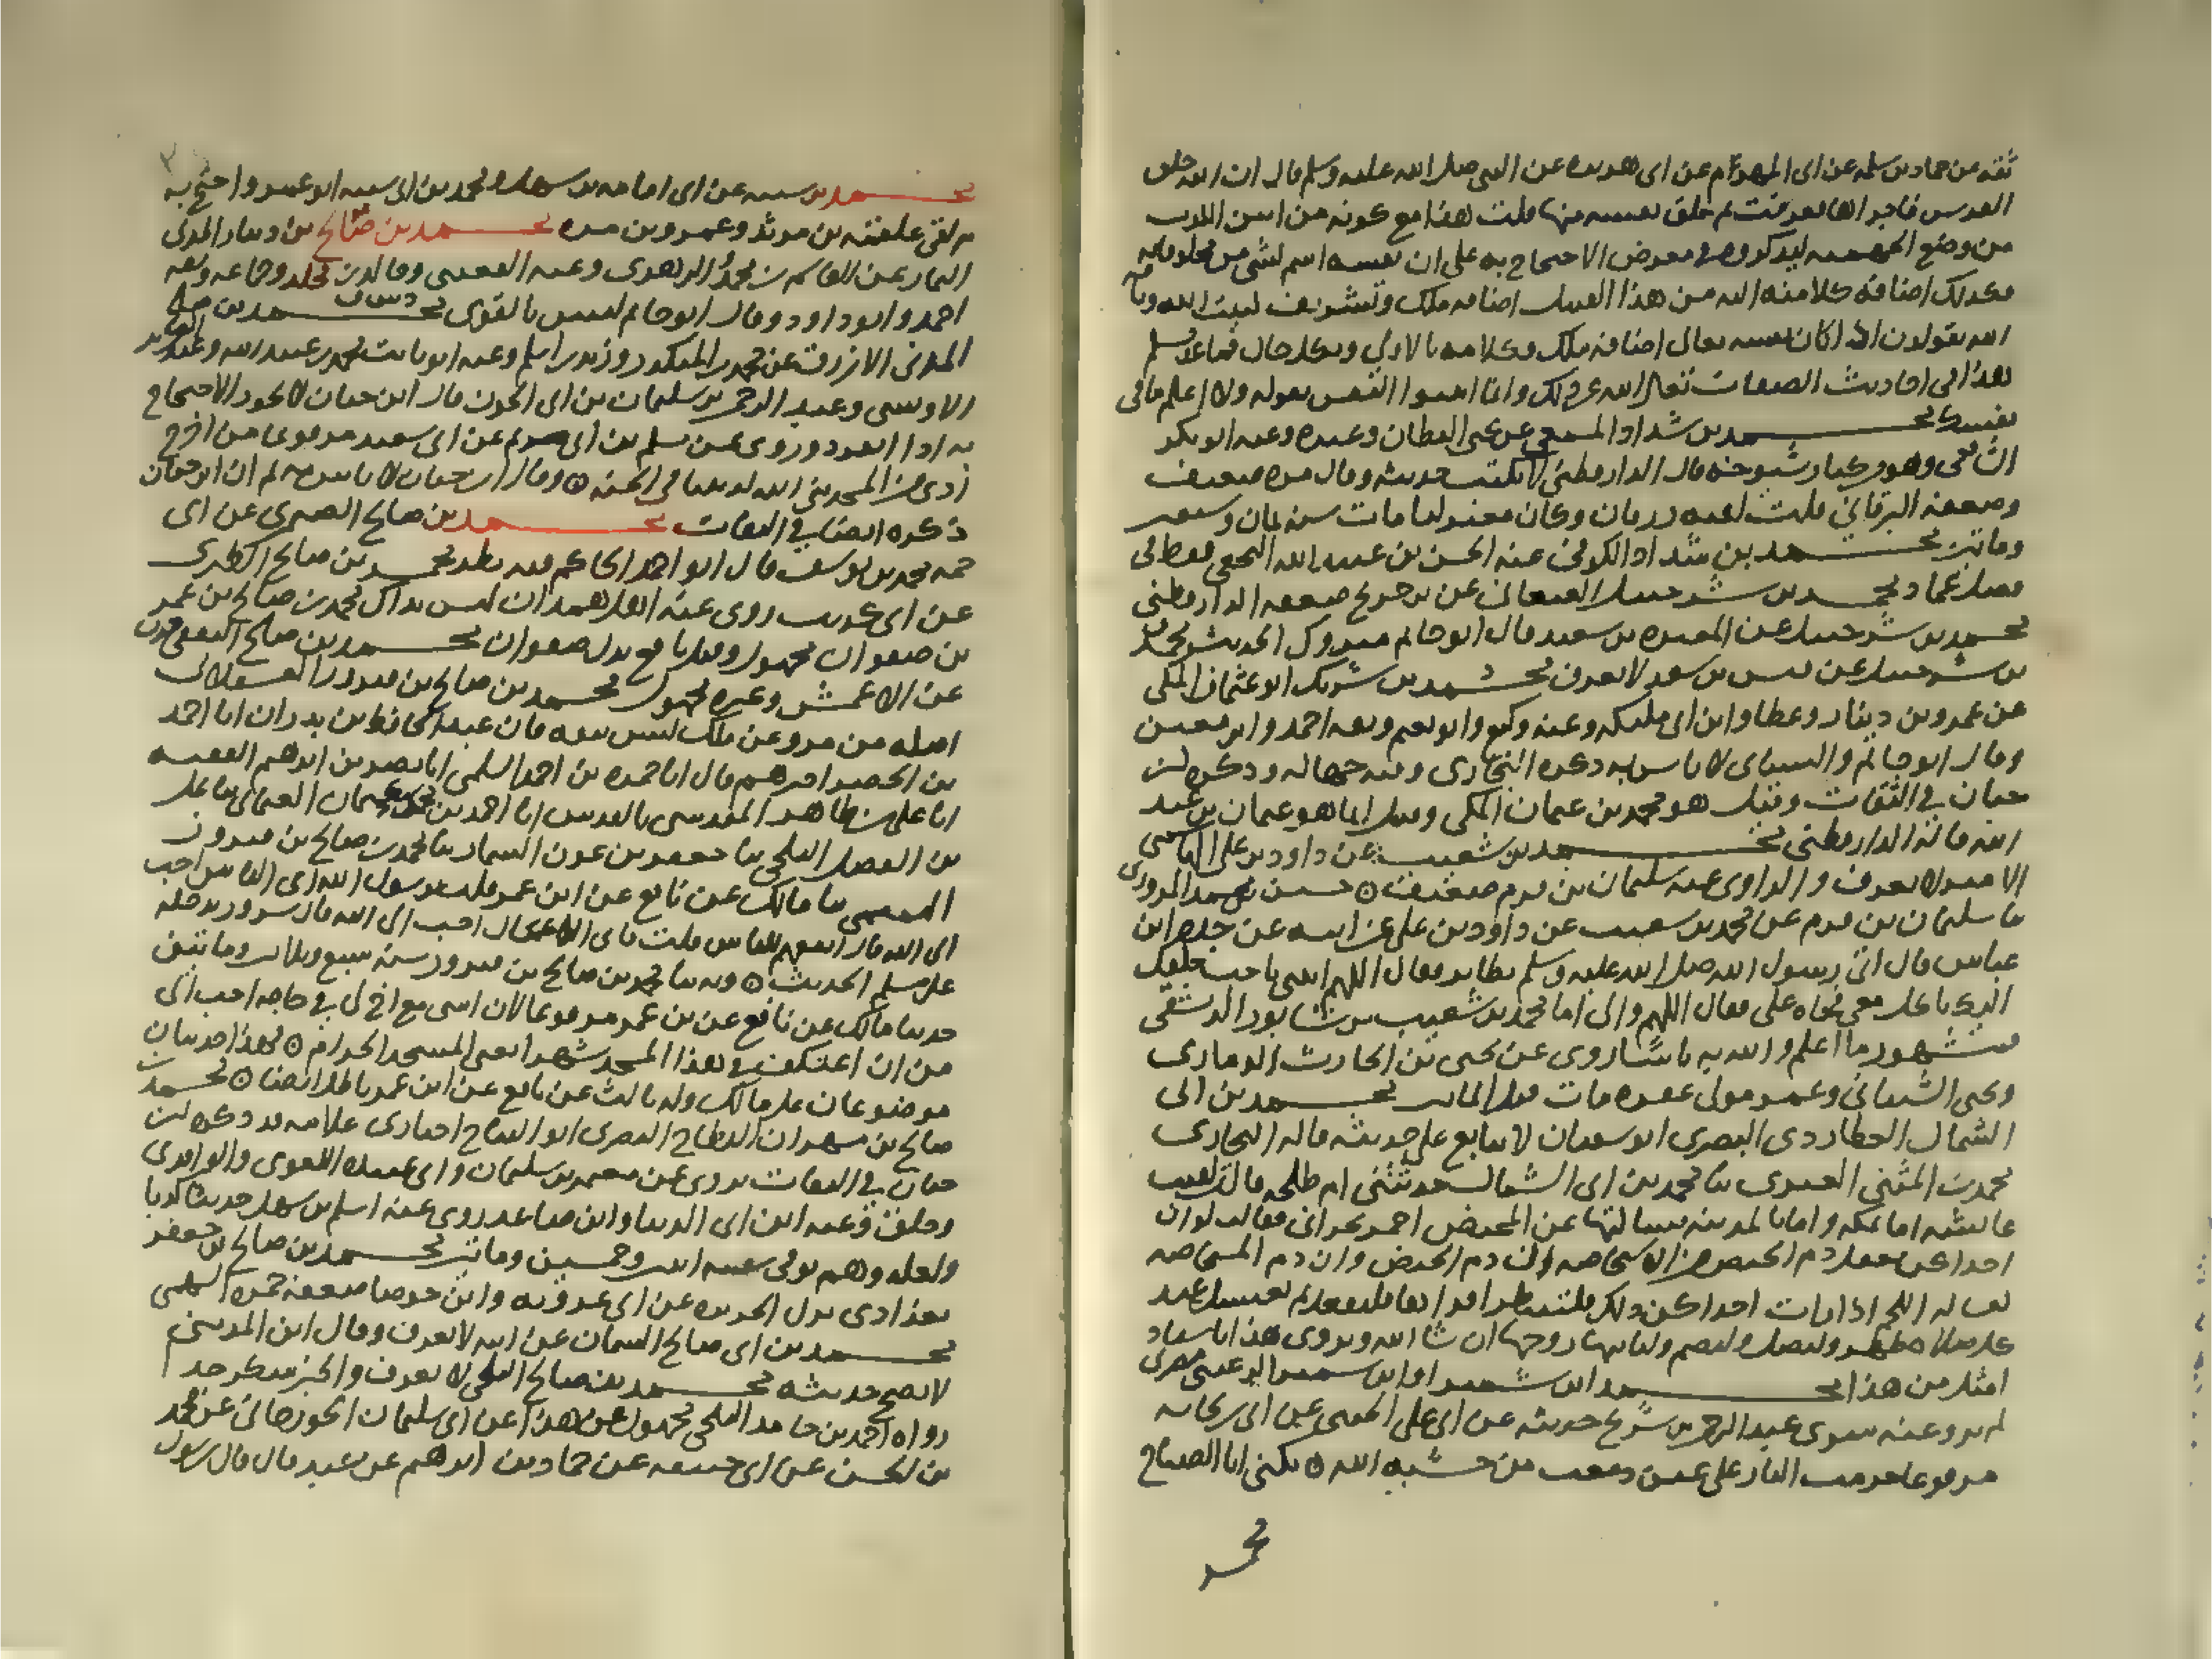 ثقه عن حماد بن سلمه عن ابى المهزم عن ابى هريره عن النبى صلى الله عليه وسلم قال ان الله خلق
الفرس فاجراها فعرقت ثم خلق نفسه منها قلت هذا مع كونه من ابين الكذب
من وضع الجهميه ليذكروه فى معرض الاحتجاج به على ان نفسه اسم لشى من مخلوقاته
فكذلك اضافة كلامه اليه من هذا القبيل اضافه ملك وتشريف لبيت الله وناقه
الله يقولون اذا كان نفسه تعالى اضافه ملك فكلامه بالاولى وبكل حال فما عد مسلم
هذا فى احاديث الصفات تعالى الله عن ذلك وانما اثبتوا النفس بقوله ولا اعلم ما فى
نفسك محمد بن شداد المسمعى عن يحيى القطان وغيره وعنه ابو بكر
الشافعى وهو من كبار شيوخه قال الدارقطنى لا يكتب حديثه وقال مره ضعيف
وضعفه البرقانى قلت لقبه زرقان وكان معتزليا مات سنه ثمان وسبعين
وماتين محمد بن شداد الكوفى عنه الحسن بن عبيد الله النخعى فقط فى
فضل عمار محمد بن شرحبيل الصنعانى عن بن جريج ضعفه الدارقطنى
محمد بن شرحبيل عن المغيره بن سعيد قال ابو حاتم متروك الحديث محمد
بن شرحبيل عن قيس بن سعد لا يعرف محمد بن شريك ابو عثمان المكى
عن عمرو بن دينار وعطا وابن ابى مليكه وعنه وكيع وابو نعيم وثقه احمد وابن معين
وقال ابو حاتم والنساى لا باس به ذكره البخارى وفيه جهاله وذكره ابن
حبان فى الثقات وقيل هو محمد بن عثمان المكى وقيل انما هو عثمان بن عبد
الله قاله الدارقطنى محمد بن شعيب عن داود بن على
الامير لا يعرف والراوى عنه سليمان بن قرم ضعيف حسين بن محمد المروذى
ثنا سليمان بن قرم عن محمد بن شعيب عن داود بن على عن ابيه عن جده ابن
عباس قال اتى رسول الله صلى الله عليه وسلم بطاير فقال اللهم ائتنى باحب خلقك
اليك ياكل معى فجاه على فقال اللهم والى اما محمد بن شعيب بن شابور الدمشقى
فمشهور ما اعلم والله به باسا روى عن يحيى بن الحارث الذمارى
ويحيى الشيبانى وعمر مولى غفره مات قبل الماتين محمد بن ابى
الشمال العطاردى البصرى ابو سفيان لا يتابع على حديثه قاله البخارى
محمد بن المثنى العنزى ثنا محمد بن ابى الشمال حدثتنى ام طلحه قالت لقيت
عائشه اما بمكه واما بالمدينه فسالتها عن المحيض احمر بحرانى فقالت لو ان
احداكن تعقل دم الحيض من الاستحاضه ان دم الحيض وان دم المستحاضه
على صلاه طهر ولتصل ولتصم ولياتيها زوجها ان شا الله ويروى هذا باسناد
امثل من هذا محمد ابن شمير او ابن سمير ابو عيسى مصرى
لم يرو عنه سوى عبد الرحمن بن شريح حديثه عن ابى على الجنبى عن ابى ريحانه
مرفوعا حرمت النار على عين دمعت من خشيه الله يكنى ابا الصباح
محمد
محمد بن شيبه عن ابى امامه بن سهل ومحمد بن ابى شيبه ابو عمير واحتج به
م لقى علقمه بن مرثد وعمرو بن مره محمد بن صالح بن دينار المدنى
التمار عن القاسم بن محمد والزهرى وعنه القعنبى وخالد بن مخلد وجماعه وثقه
احمد وابو داود وقال ابو حاتم ليس بالقوى محمد بن صالح
المدنى الازرق عن محمد بن المنكدر وزيد بن اسلم وعنه ابو ثابت محمد بن عبيد الله وعبد العزيز
الاويسى وعبد الرحمن بن سليمان بن ابى الجون قال ابن حبان لا يجوز الاحتجاج
به اذا انفرد وروى عن مسلم بن ابى مريم عن ابى سعيد مرفوعا من اخرج
اذى من المسجد بنى الله له بيتا فى الجنه وقال ابن حبان لا باس به ثم ان ابن حبان
ذكره ايضا فى الثقات محمد بن صالح الصيمرى عن ابى
حمه محمد بن يوسف قال ابو احمد الحاكم فيه نظر محمد بن صالح الطبرى
عن ابى كريب روى عنه اهل همدان ليس بذاك محمد بن صالح بن عمر
بن صفوان مجهول وقيل نافع بدل صفوان محمد بن صالح الثقفى
عن الاعمش وغيره مجهول محمد بن صالح بن فيروز العسقلانى
اصله من مرو عن مالك ليس بثقه فان عبد الحافظ بن بدران انا احمد
بن الخضر اخبرهم قال انا حمزه بن احمد السلمى انا نصر بن ابرهيم الفقيه
انا على بن طاهر المقدسى بالقدس انا احمد بن محمد بن عثمان العثمانى ثنا على
بن الفضل البلخى ثنا جعفر بن عون السمار ثنا محمد بن صالح بن فيروز
التميمى ثنا مالك عن نافع عن ابن عمر قلت يرسول الله اى الناس احب
الى الله قال انفعهم للناس قلت فاى الاعمال احب الى الله قال سرور يدخله
على مسلم الحديث وبه ثنا محمد بن صالح بن فيروز سنة سبع وثلاثين وماتين
حدثنا مالك عن نافع عن بن عمر مرفوعا لان امشى مع اخ لى فى حاجه احب الى
من ان اعتكف فى هذا المسجد شهرا يعنى المسجد الحرام هذا حديثان
موضوعان على مالك وله ثالث عن نافع عن ابن عمر باطل ايضا محمد بن
صالح بن مهران النطاح البصرى ابو التياح اخبارى علامه قد ذكره ابن
حبان فى الثقات يروى عن معتمر بن سليمان وابى عبيده اللغوى والواقدى
وخلق وعنه ابن ابى الدنيا وابن صاعد روى عنه اسلم بن سهل حديثا كذبا
ولعله وهم توفى سنه اثنين وخمسين وماتين محمد بن صالح بن جعفر
بغدادى نزل الجزيره عن ابى عروبه وابن جوصا ضعفه حمزه السهمى
محمد بن ابى صالح السمان عن ابيه لا يعرف وقال ابن المدينى
لا يصح حديثه محمد بن صالح البلخى لا يعرف والخبر منكر جدا
رواه احمد بن حامد البلخى مجهول عن هذا عن ابى سليمان الجوزجانى عن محمد
بن الحسن عن ابى حنيفه عن حماد بن ابرهيم عن سعيد قال قال رسول